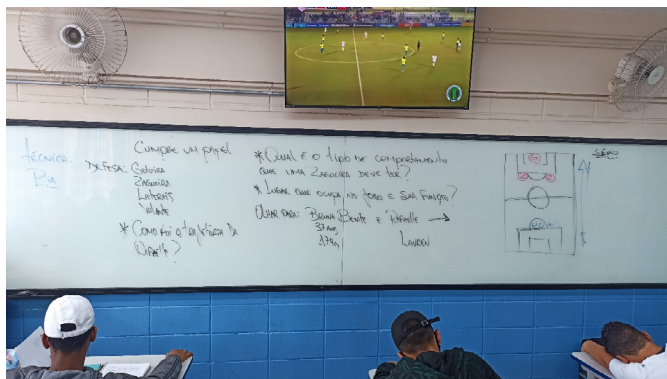 Técnica:
Pia
Cumpre um papel
Defesa: Goleira
Zagueira
Laterais
Volante
* Como foi a trajetória da
* Qual é o tipo de comportamento
que uma zagueira deve ter?
* Lugar que ocupa no jogo e sua função?
Olhar para: Bruna Benite e Rafaelle →
37 anos
1,74m
Lauren